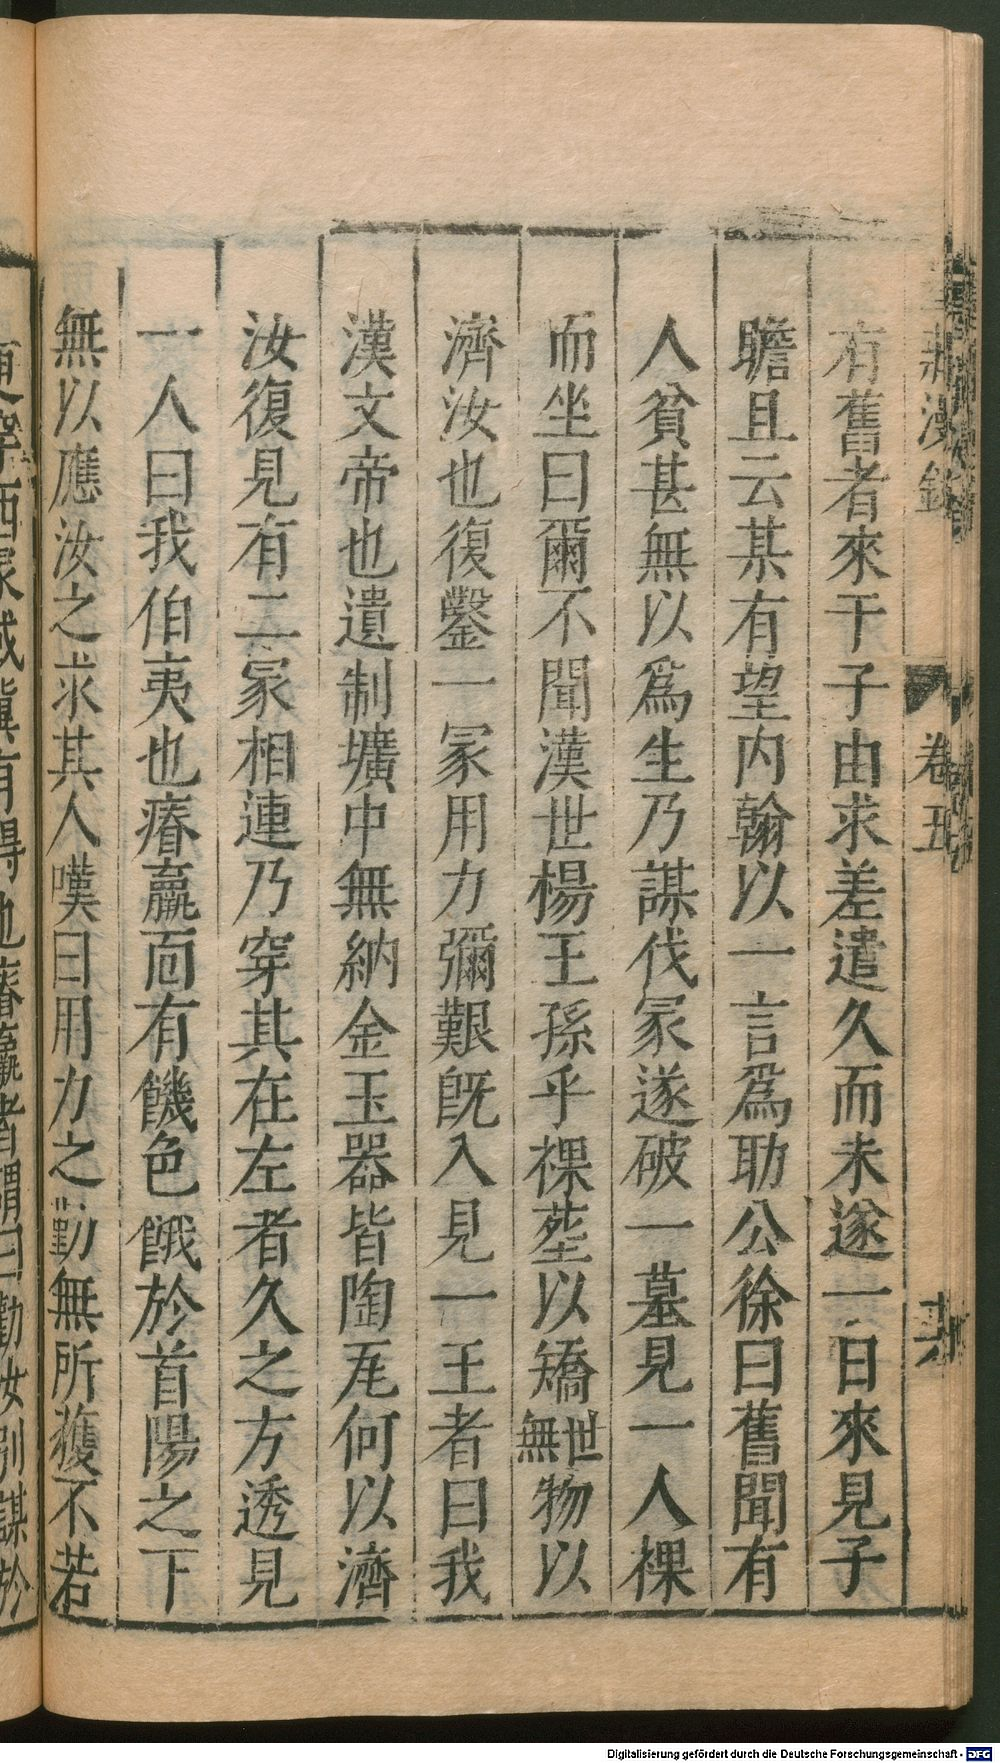 漫錄
卷五
有舊者來干子由求差遣久而未遂一日來見子
瞻且云某有望內翰以一言爲助公徐曰舊聞有
人貧甚無以爲生乃謀伐冢遂破一墓見一人裸
而坐曰爾不聞漢世楊王孫乎裸葬以矯世無物以
濟汝也復鑿一冢用力彌艱旣入見一王者曰我
漢文帝也遺制壙中無納金玉器皆陶瓦何以濟
汝復見有二冢相連乃穿其在左者久之方透見
一人曰我伯夷也瘠羸面有饑色餓於首陽之下
無以應汝之求其人嘆曰用力之勤無所獲不若
更穿西冢或冀有得也瘠羸者謂曰勸汝別謀於
Digitalisierung gefördert durch die Deutsche Forschungsgemeinschaft - DFG